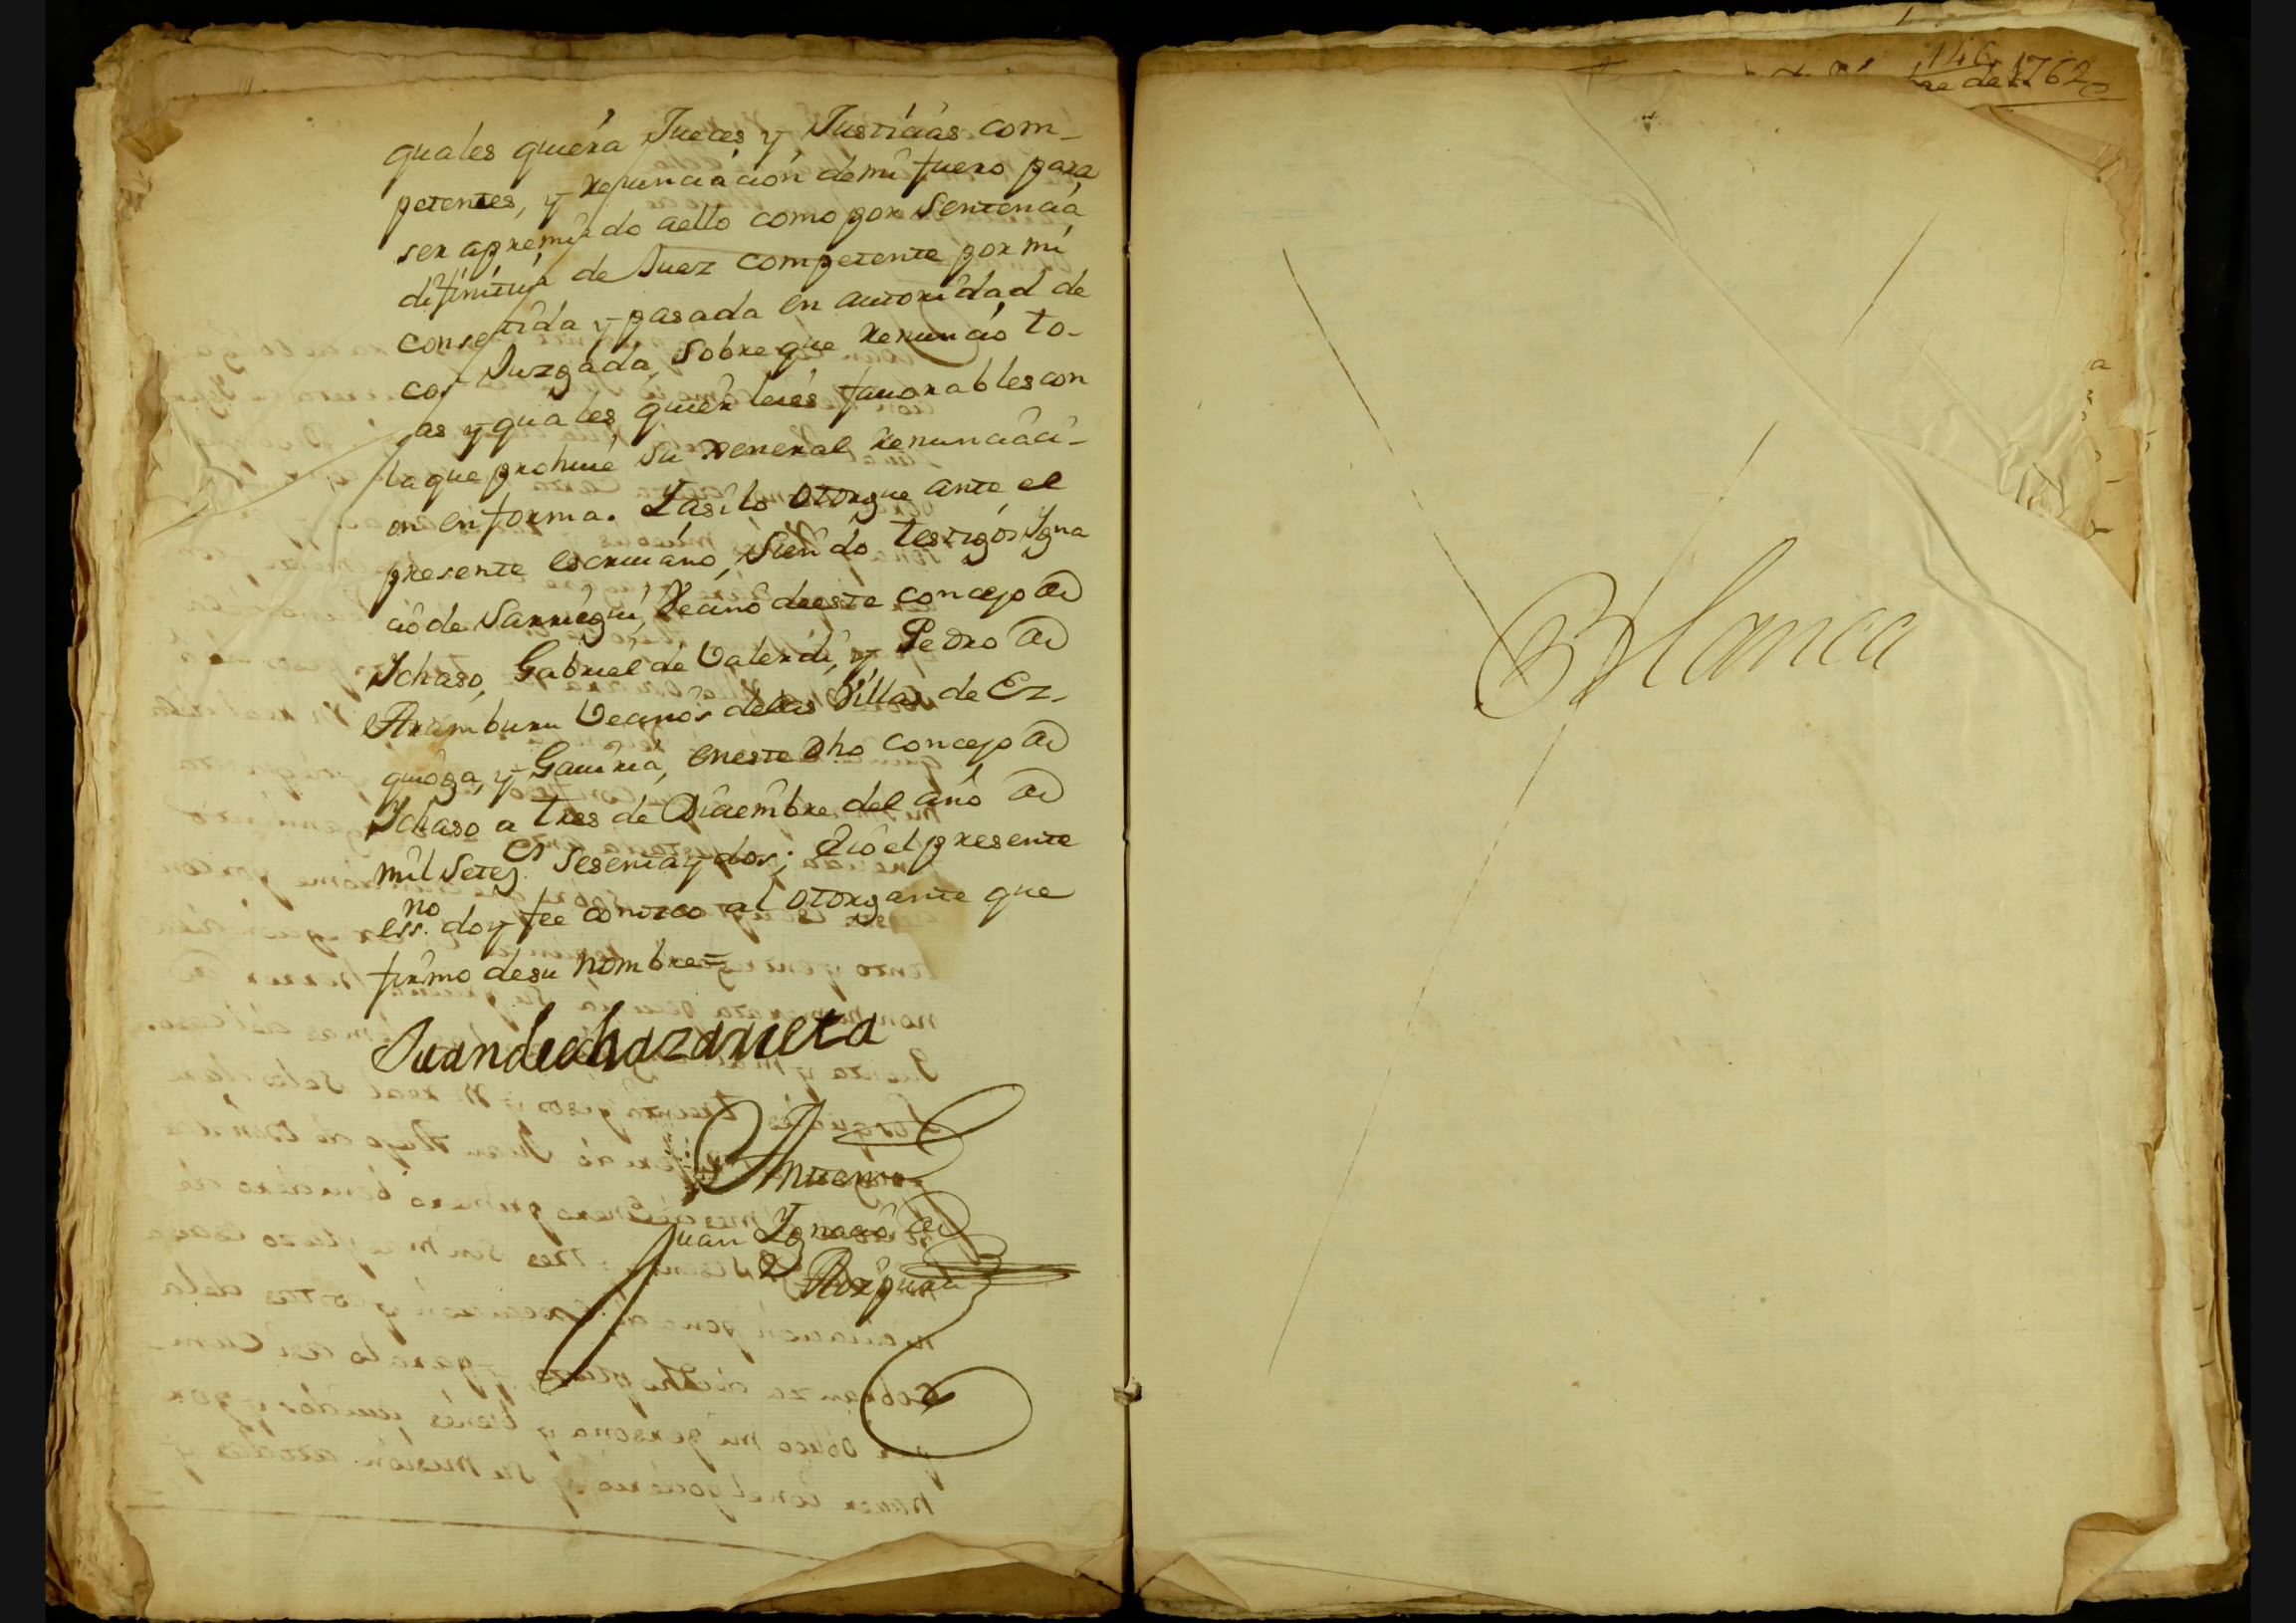 quales quiera Jueces y Justicias com-
petentes, y renunciacion de mi fuero para
ser apremiado aello como por Sentencia
difinitiua de Juez competente por mi
consetida y pasada en autoridad de
cosa Juzgada, sobre que renuncio to-
as y quales quier leies fauorables con
la que prohiue su xeneral renunciaci-
on en forma. Y asi lo otorgue ante el
presente escriuano, siendo testigos Ygna
cio de Sarriegui, Vecino deeste concejo de
Ychaso, Gabriel de Valerdi, y Pedro de
Aramburu Vecinos delas Villas de Ez-
quioga, y Gauiria, eneste dho concejo de
Ychaso a tres de Diciembre del año de
mil Setez.os sesenta y dos; e Io el presente
ess.no doy fee conozco al otorgante que
firmo desu nombre=
Juan de chazarreta
Antemi
Juan Ygnacio de
Aizpuru
146
de 1762
Blanca